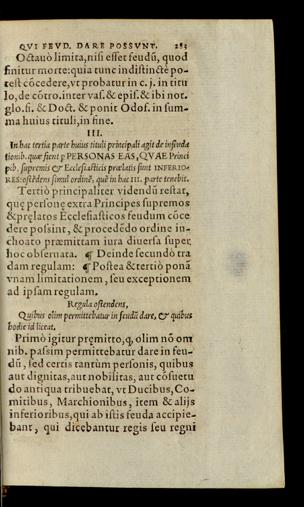 QVI FEVD. DARE POSSVNT. 283
Octauò limita, nisi esset feudũ, quod
finitur morte: quia tunc indistinctè po-
test cõcedere, vt probatur in c. j. in titu
lo, de cõtro. inter vas. & epis. & ibi not.
glo. fi. & Doct. & ponit Odof. in sum-
ma huius tituli, in fine.
III.
In hac tertia parte huius tituli principali agit de infeuda
tionib. quæ fiunt p PERSONAS EAS, QVAE Princi
pib. supremis & Ecclesiasticis prælatis sunt INFERIO-
RES: ostẽdens simul ordinẽ, quẽ in hac III. parte tenebit.
Tertiò principaliter videndũ restat,
quę personę extra Principes supremos
& pręlatos Ecclesiasticos feudum cõce
dere possint, & procedẽdo ordine in-
choato præmittam iura diuersa super
hoc obseruata. ¶ Deinde secundò tra
dam regulam: ¶ Postea & tertiò ponã
vnam limitationem, seu exceptionem
ad ipsam regulam.
Regula ostendens,
Quibus olim permittebatur in feudũ dare, & quibus
hodie id liceat.
Primò igitur pręmitto, q, olim nõ om
nib. passim permittebatur dare in feu-
dũ, sed certis tantùm personis, quibus
aut dignitas, aut nobilitas, aut cõsuetu
do antiqua tribuebat, vt Ducibus, Co-
mitibus, Marchionibus, item & alijs
inferioribus, qui ab istis feuda accipie-
bant, qui dicebantur regis seu regni